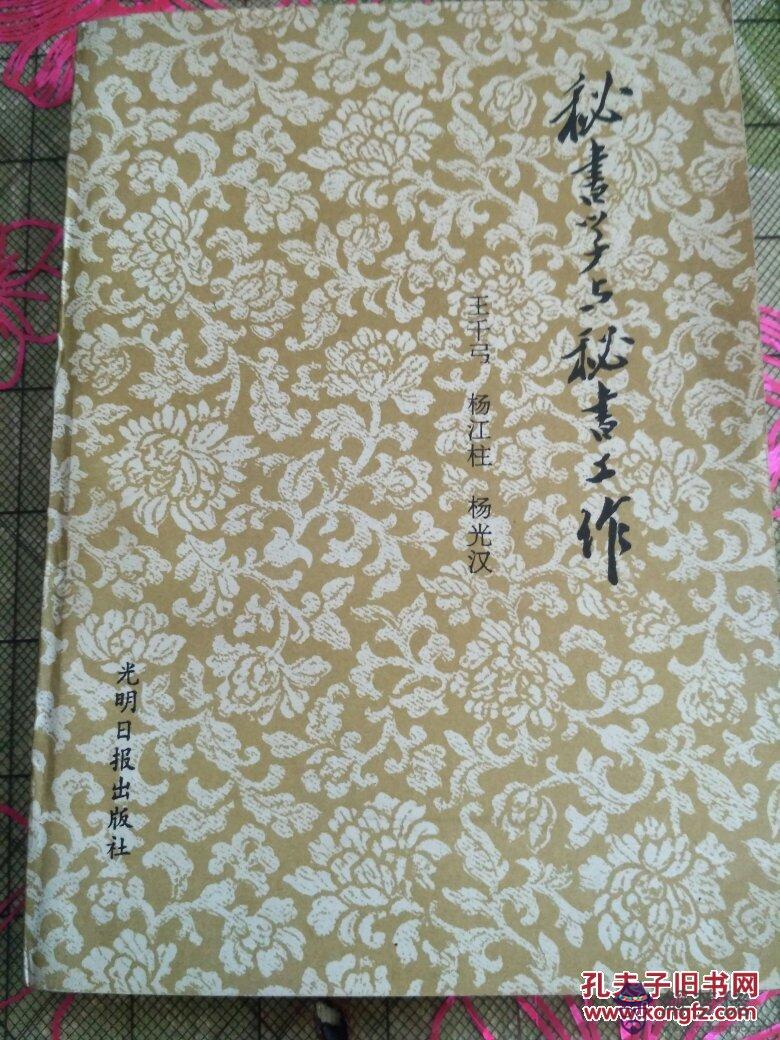 秘书学与秘书工作
王千弓 杨江柱 杨光汉
光明日报出版社
孔夫子旧书网
www.kongfz.com